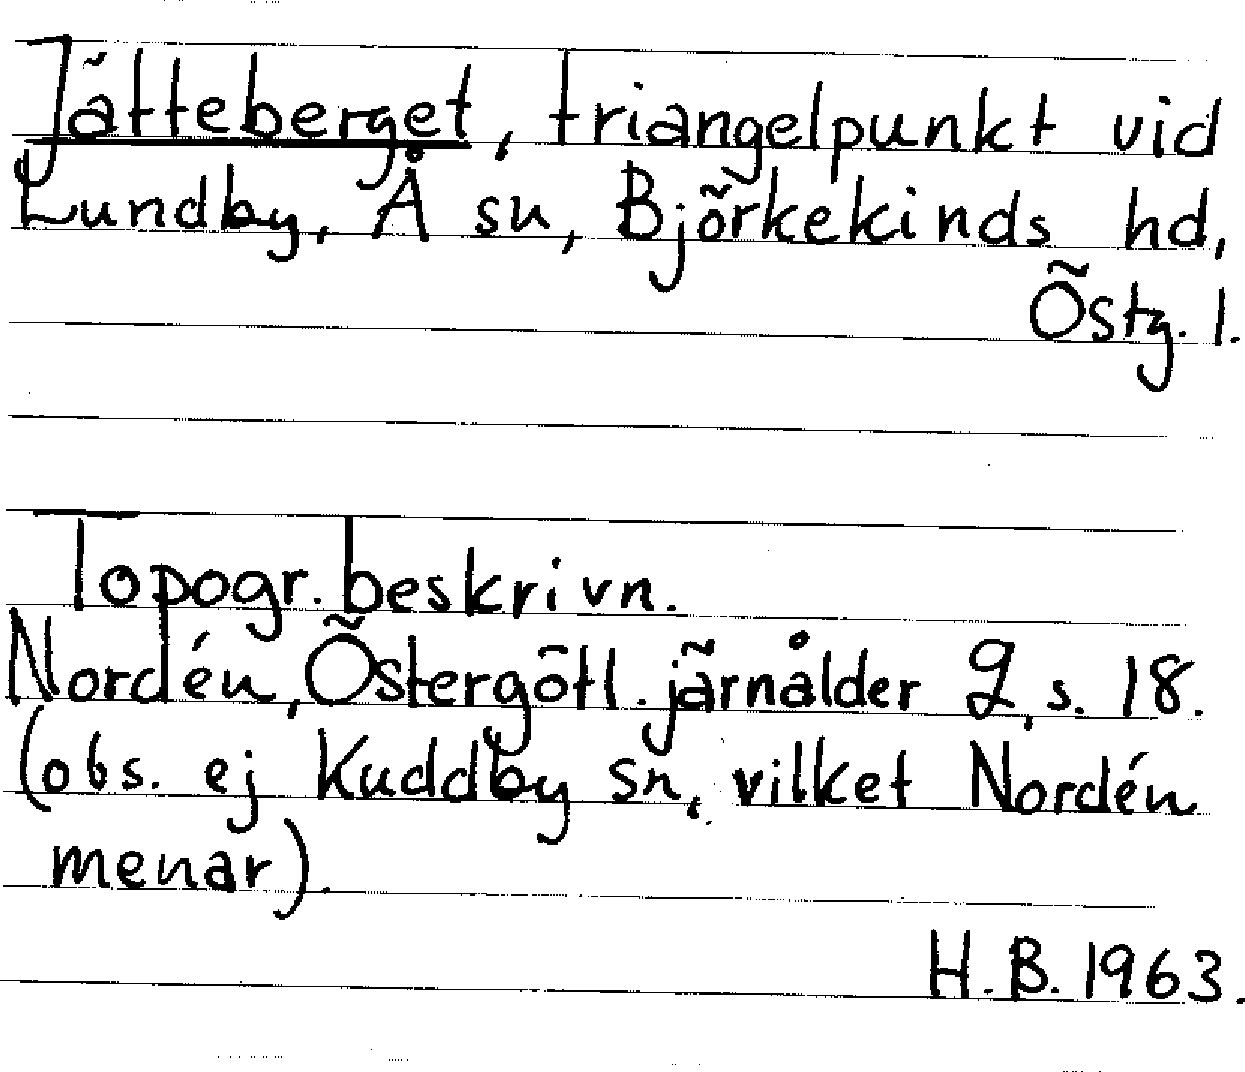 Jätteberget, triangelpunkt vid
Lundby, Å sn, Björkekinds hd,
Östg. l.
Topogr. beskrivn.
Nordén, Östergötl. järnålder 2, s. 18.
(obs. ej Kuddby sn, vilket Nordén
menar).
H.B. 1963.